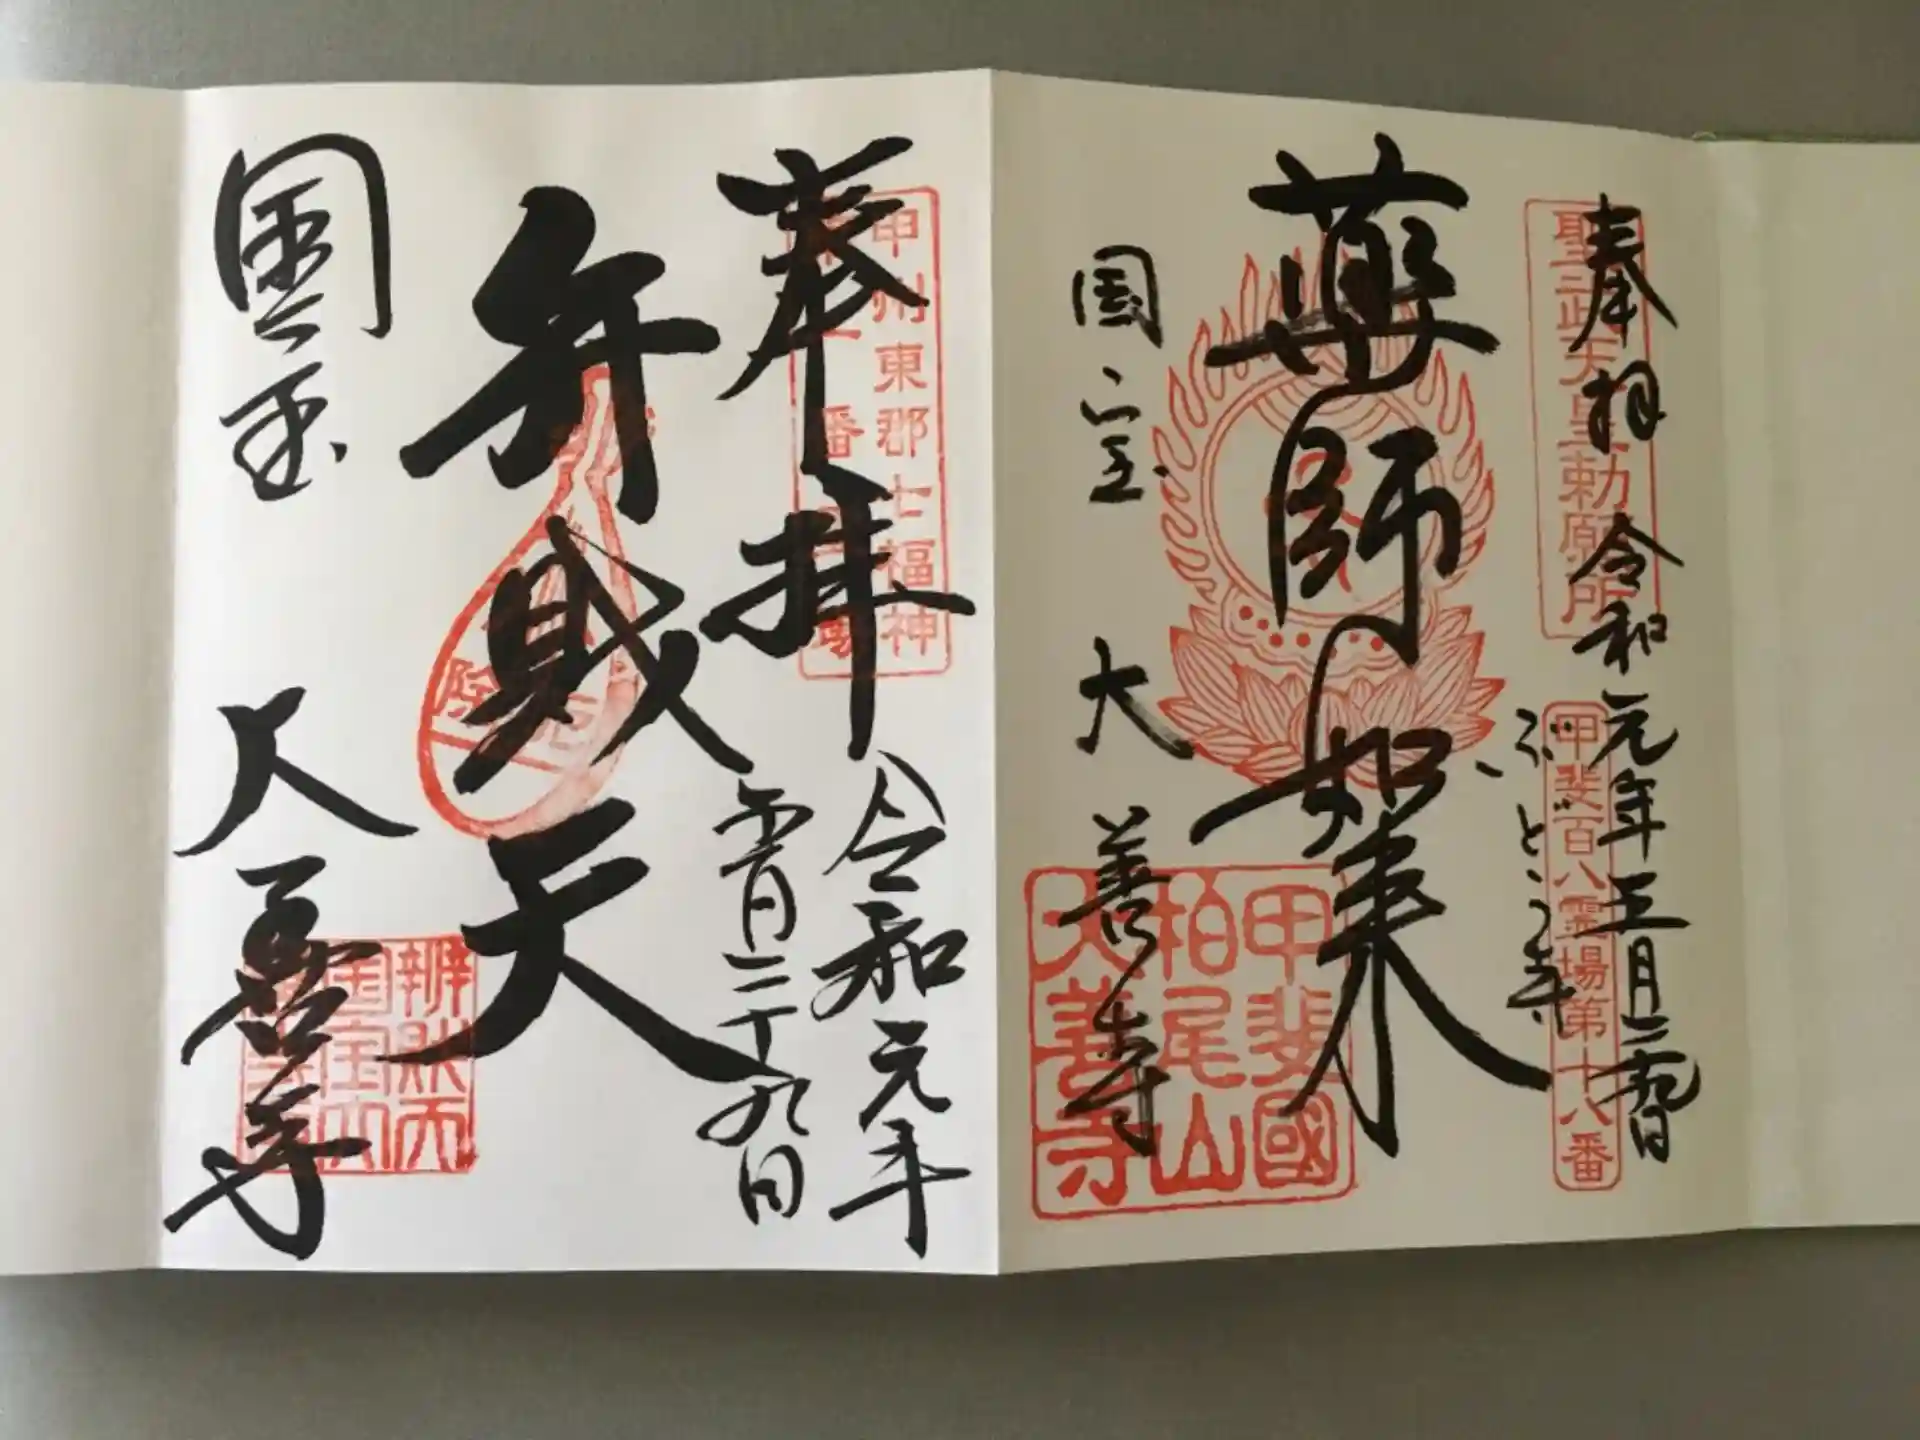 奉拝 令和元年五月二十九日
聖武天皇勅願所
甲斐百八霊場第十八番
ぶどう寺
薬師如来
国宝 大善寺
甲斐國
柏尾山
大善寺
奉拝 令和元年
五月二十九日
甲州東郡七福神
弁財天
國宝 大善寺
辨財天
国宝